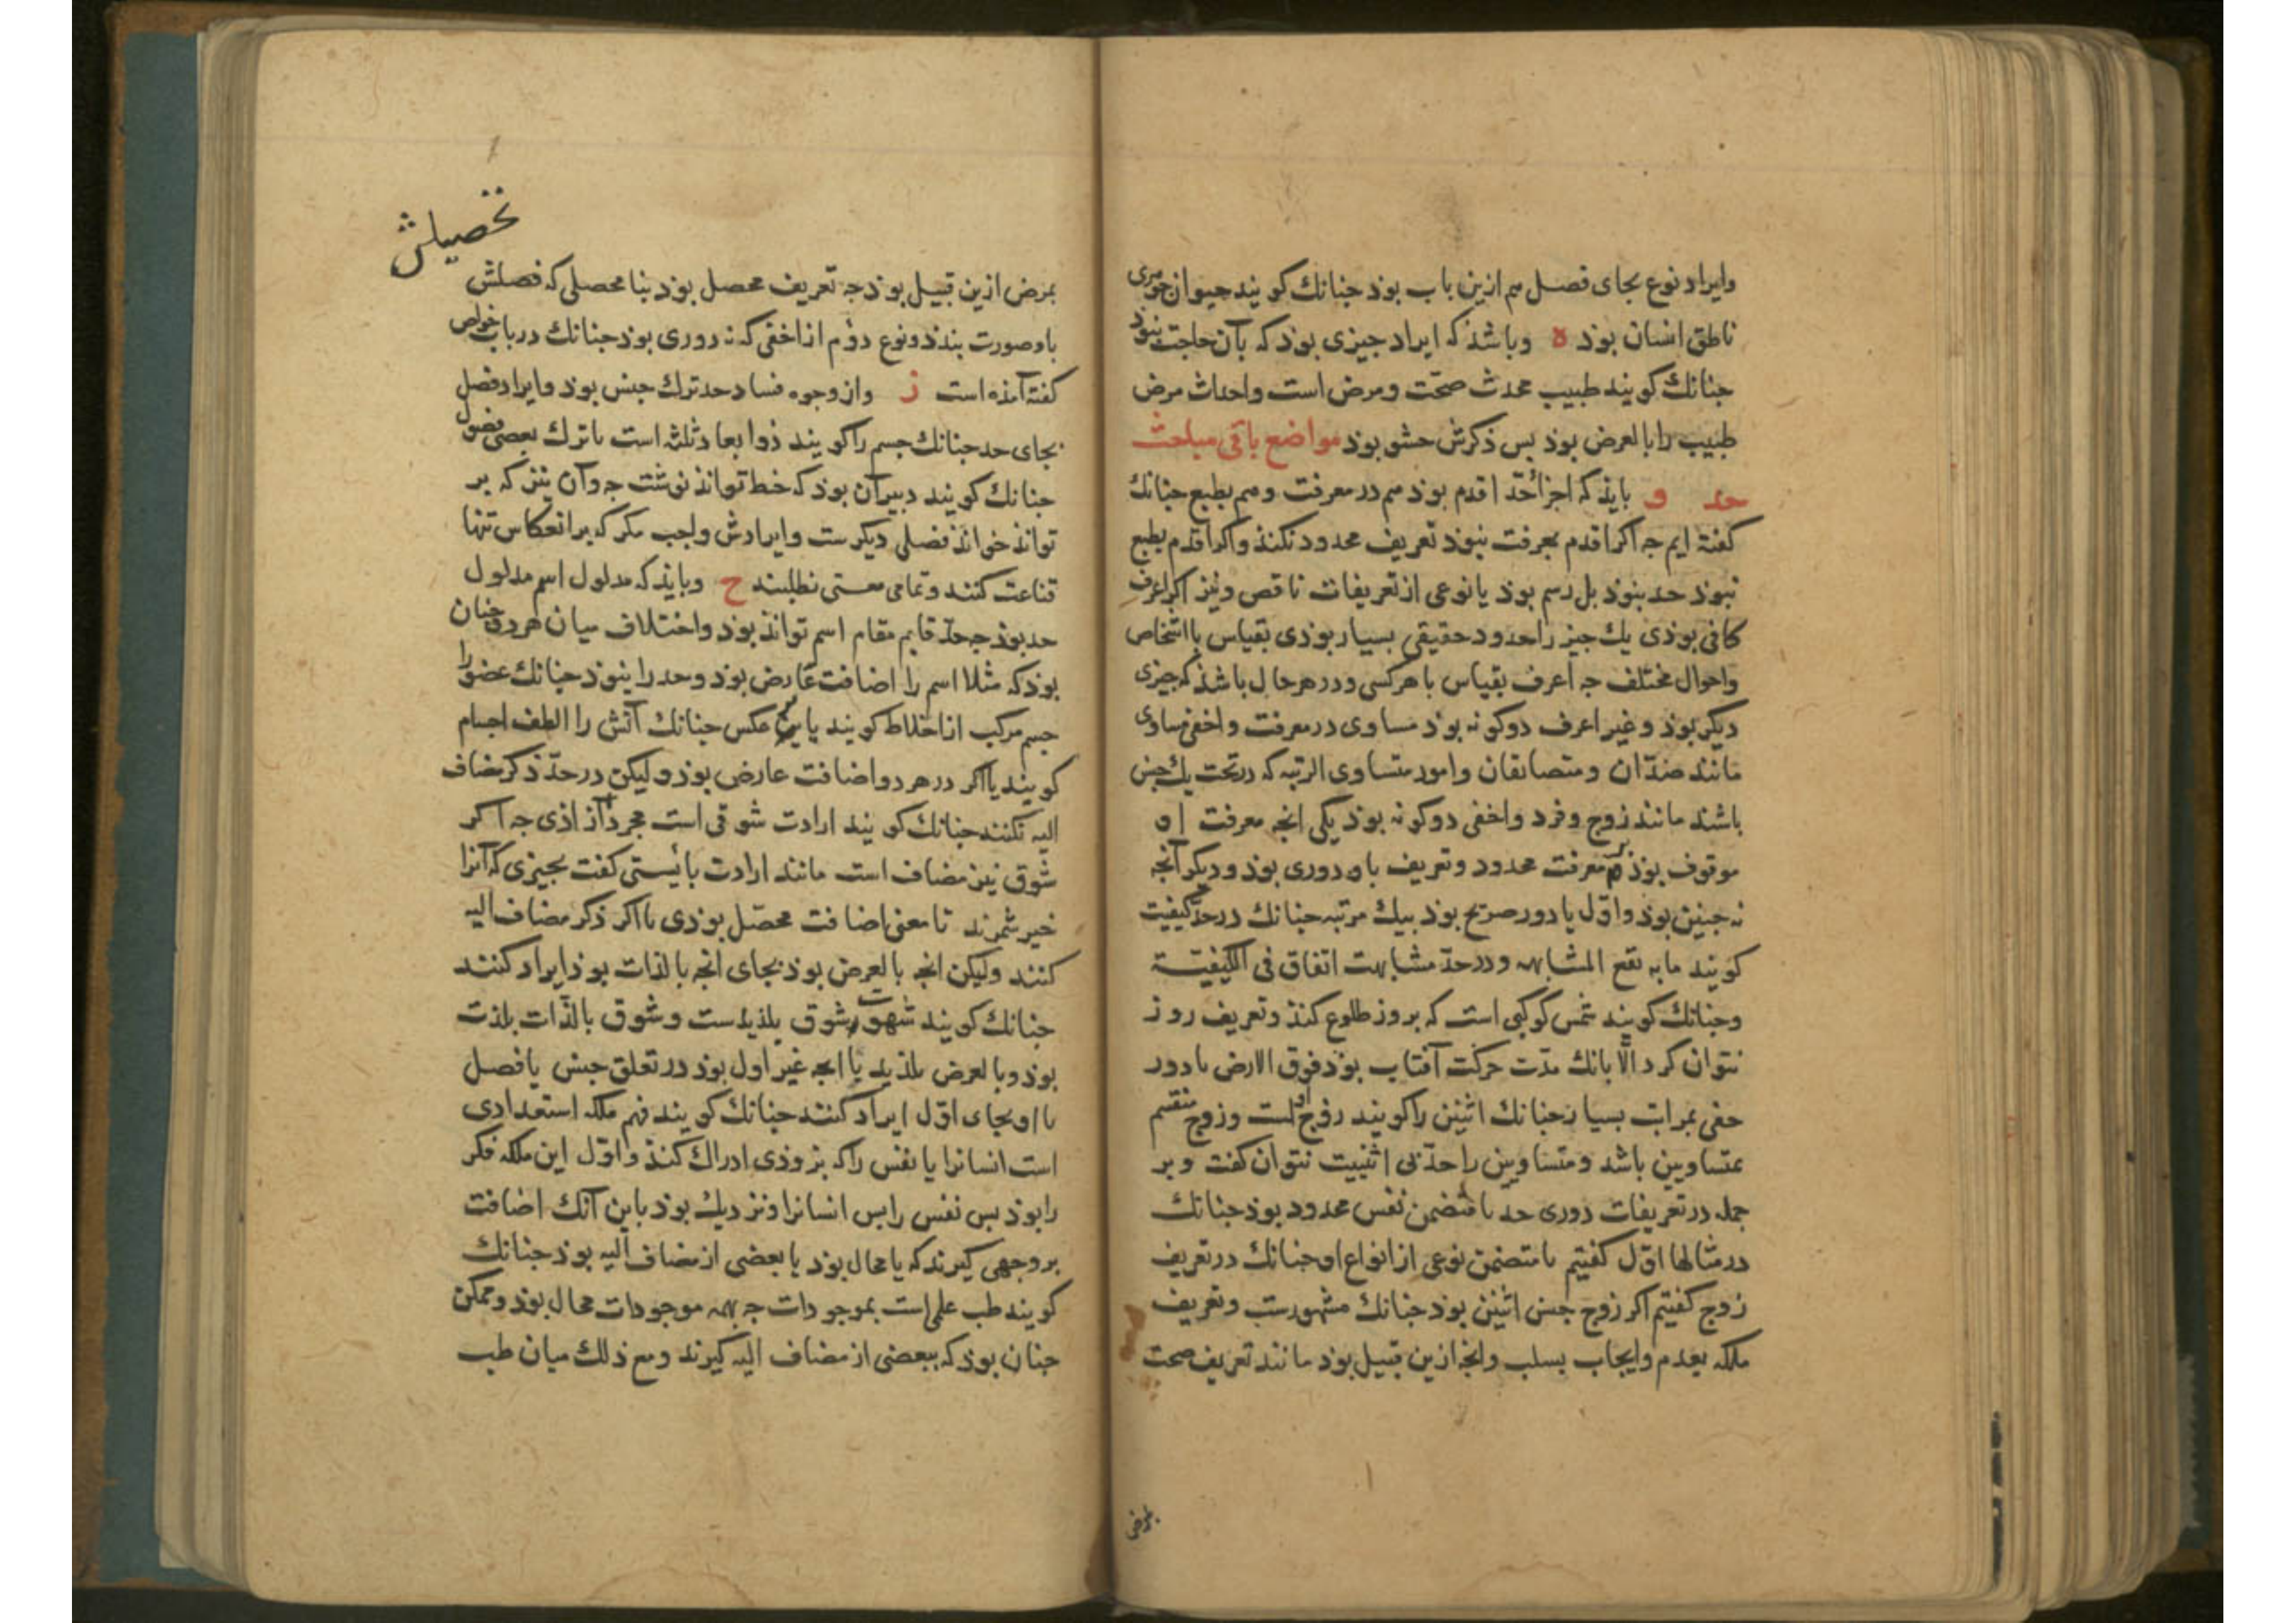 وایراد نوع بجای فصل هم ازین باب بوذ جنانك کویند حیوان جوهری
ناطق انسان بوذ ه وباشذ که ایراد جیزی بوذ که بآن حاجت نبوذ
جنانك کویند طبیب محدث صحّت ومرض است واحداث مرض
طبیب را بالعرض بوذ بس ذکرش حشو بوذ مواضع باقی مباحث
حد و بایذ که اجزائ حدّ اقدم بوذ هم در معرفت وهم بطبع جنانك
کفته ایم جه اکر اقدم بمعرفت نبوذ تعریف محدود نکنذ واکر اقدم بطبع
نبوذ حد نبوذ بل رسم بوذ یا نوعی از تعریفات ناقص ونیز اکر اعرف
کافی بوذی یك جیز را حدود حقیقی بسیار بوذی بقیاس با اشخاص
واحوال مختلف جه اعرف بقیاس با هر کسی ودر هر حال باشذ که جیزی
دیکر بوذ وغیر اعرف دو کونه بوذ مساوی در معرفت واخفی مساوی
مانند ضدّان ومتضایفان وامور متساوی الرتبه که در تحت یك جنس
باشند مانند زوج وفرد واخفی دو کونه بوذ یکی انجه معرفت او
موقوف بوذ بر معرفت محدود وتعریف باو دوری بوذ ودیکر آنجه
نه جنین بوذ واوّل یا دور صریح بوذ بیك مرتبه جنانك در حدّ کیفیت
کویند ما به تقع المشابهه ودر حدّ مشابهت اتفاق فی الکیفیّة
وجنانك کویند شمس کوکبی است که بروز طلوع کنذ وتعریف روز
نتوان کرد الّا بانك مدّت حرکت آفتاب بوذ فوق الارض یا دور
خفی بمراتب بسیار جنانك اثنین را کویند زوج اول است وزوج منقسم
بمتساویین باشد ومتساویین را حدّ بی اثنینیت نتوان کفت وبر
جمله در تعریفات دوری حد یا متضمن نفس محدود بوذ جنانك
در مثالها اوّل کفتیم یا متضمن نوعی از انواع او جنانك در تعریف
زوج کفتیم اکر زوج جنس اثنین بوذ جنانك مشهورست وتعریف
ملکه بعدم وایجاب بسلب وانجه ازین قبیل بوذ مانند تعریف صحت
بمرض
تحصیلش
بمرض ازین قبیل بوذ جه تعریف محصل بوذ بنا محصلی که فصلش
باو صورت بندذ ونوع دوّم از اخفی که نه دوری بوذ جنانك در باب خواص
کفته آمذه است ز واز وجوه فساد حد ترك جنس بوذ وایراد فصل
بجای حد جنانك جسم را کویند ذو ابعاد ثلثه است یا ترك بعضی فصول
جنانك کویند دبیر آن بوذ که خط تواند نوشت جه وآن نیز که بر
تواند خواند فصلی دیکرست وایرادش واجب مکر که بر انعکاس تنها
قناعت کنند وتمامی معنی نطلبند ح وبایذ که مدلول اسم مدلول
حد بوذ جه حدّ قایم مقام اسم تواند بوذ واختلاف میان هر دو جنان
بوذ که مثلا اسم را اضافت عارض بوذ وحد را نبوذ جنانك عضو را
جسم مرکب از اخلاط کویند یا بر عکس جنانك آتش را الطف اجسام
کویند یا اکر در هر دو اضافت عارض بوذ ولیکن در حدّ ذکر مضاف
الیه نکنند جنانك کویند ارادت شوقی است مجرد از اذی جه اکر
شوق نیز مضاف است مانند ارادت بایستی کفت بجیزی که آنرا
خیر شمرند تا معنی اضافت محصّل بوذی یا اکر ذکر مضاف الیه
کنند ولیکن انجه بالعرض بوذ بجای انجه بالذات بوذ ایراد کنند
جنانك کویند شهوت شوق بلذیذست وشوق بالذّات بلذت
بوذ وبالعرض بلذیذ یا انجه غیر اول بوذ در تعلق جنس یا فصل
باو بجای اوّل ایراد کنند جنانك کویند فهم ملکه استعدادی
است انسانرا یا نفس را که بزوذی ادراك کنذ واوّل این ملکه فکر
را بوذ بس نفس را بس انسانرا ونزدیك بوذ باین آنك اضافت
بر وجهی کیرند که یا محال بوذ یا بعضی از مضاف الیه بوذ جنانك
کویند طب علم است بموجودات جه بهمه موجودات محال بوذ وممکن
جنان بوذ که ببعضی از مضاف الیه کیرند ومع ذلك میان طب